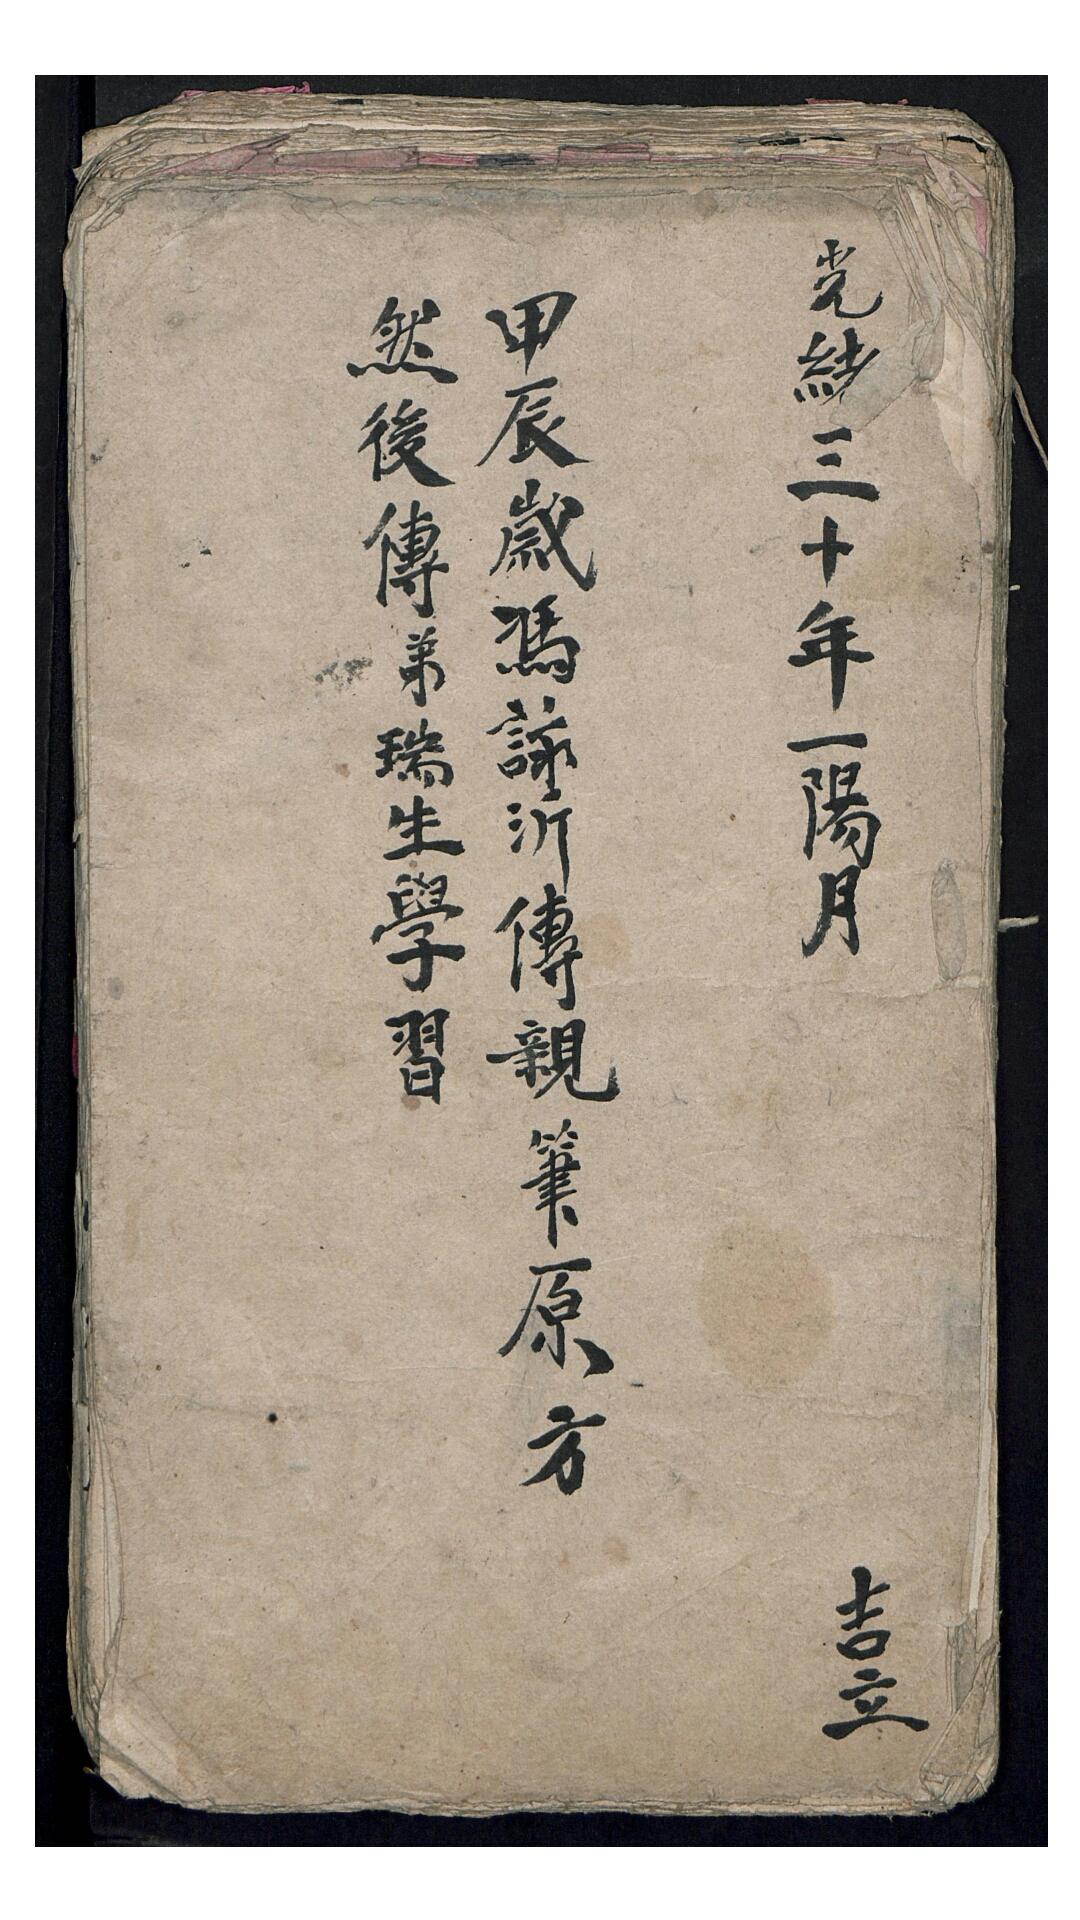 光緒三十年一陽月 吉立
甲辰歲馮詠沂傳親筆原方
然後傳弟瑞生學習